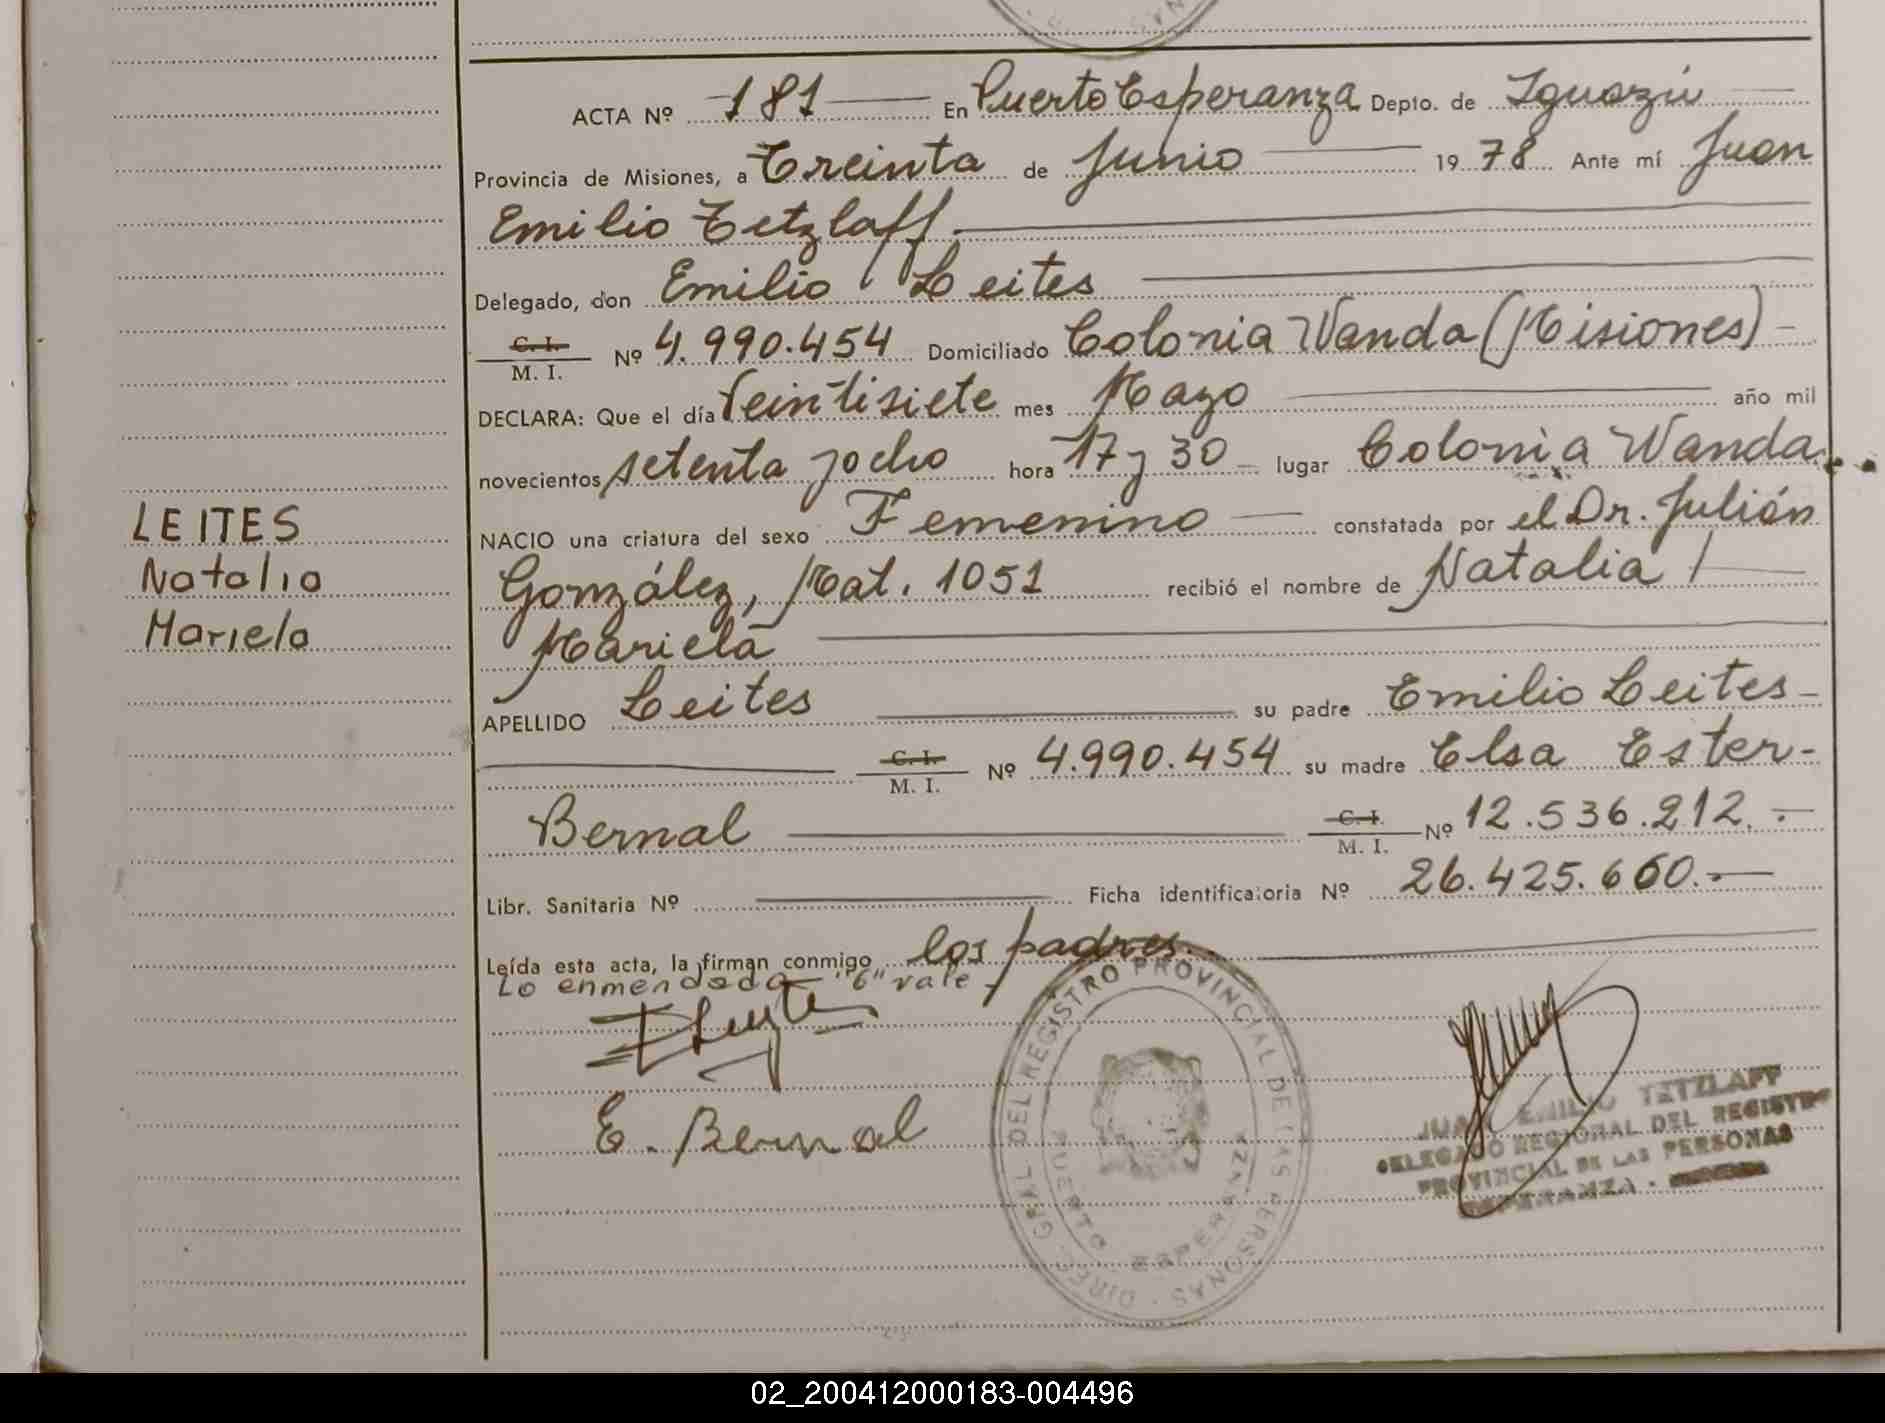 ACTA Nº 181 En Puerto Esperanza Depto. de Iguazú
Provincia de Misiones, a Treinta de Junio 1978 Ante mí Juan
Emilio Tetzlaff.
Delegado, don Emilio Leites
C. I. M. I. Nº 4.990.454 Domiciliado Colonia Wanda (Misiones)
DECLARA: Que el día Veintisiete mes Mayo año mil
novecientos setenta y ocho hora 17 y 30 lugar Colonia Wanda.
NACIO una criatura del sexo Femenino constatada por el Dr. Julián
González, Mat. 1051 recibió el nombre de Natalia
Mariela
LEITES
Natalia
Mariela
APELLIDO Leites su padre Emilio Leites
C. I. M. I. Nº 4.990.454 su madre Elsa Ester
Bernal C. I. M. I. Nº 12.536.212.
Libr. Sanitaria Nº Ficha identificatoria Nº 26.425.660.
Leída esta acta, la firman conmigo los padres.
Lo enmendado "6" vale
E. Bernal
DIREC. GRAL. DEL REGISTRO PROVINCIAL DE LAS PERSONAS
PUERTO ESPERANZA
JUAN EMILIO TETZLAFF
DELEGADO REGIONAL DEL REGISTRO
PROVINCIAL DE LAS PERSONAS
ESPERANZA
02_200412000183-004496